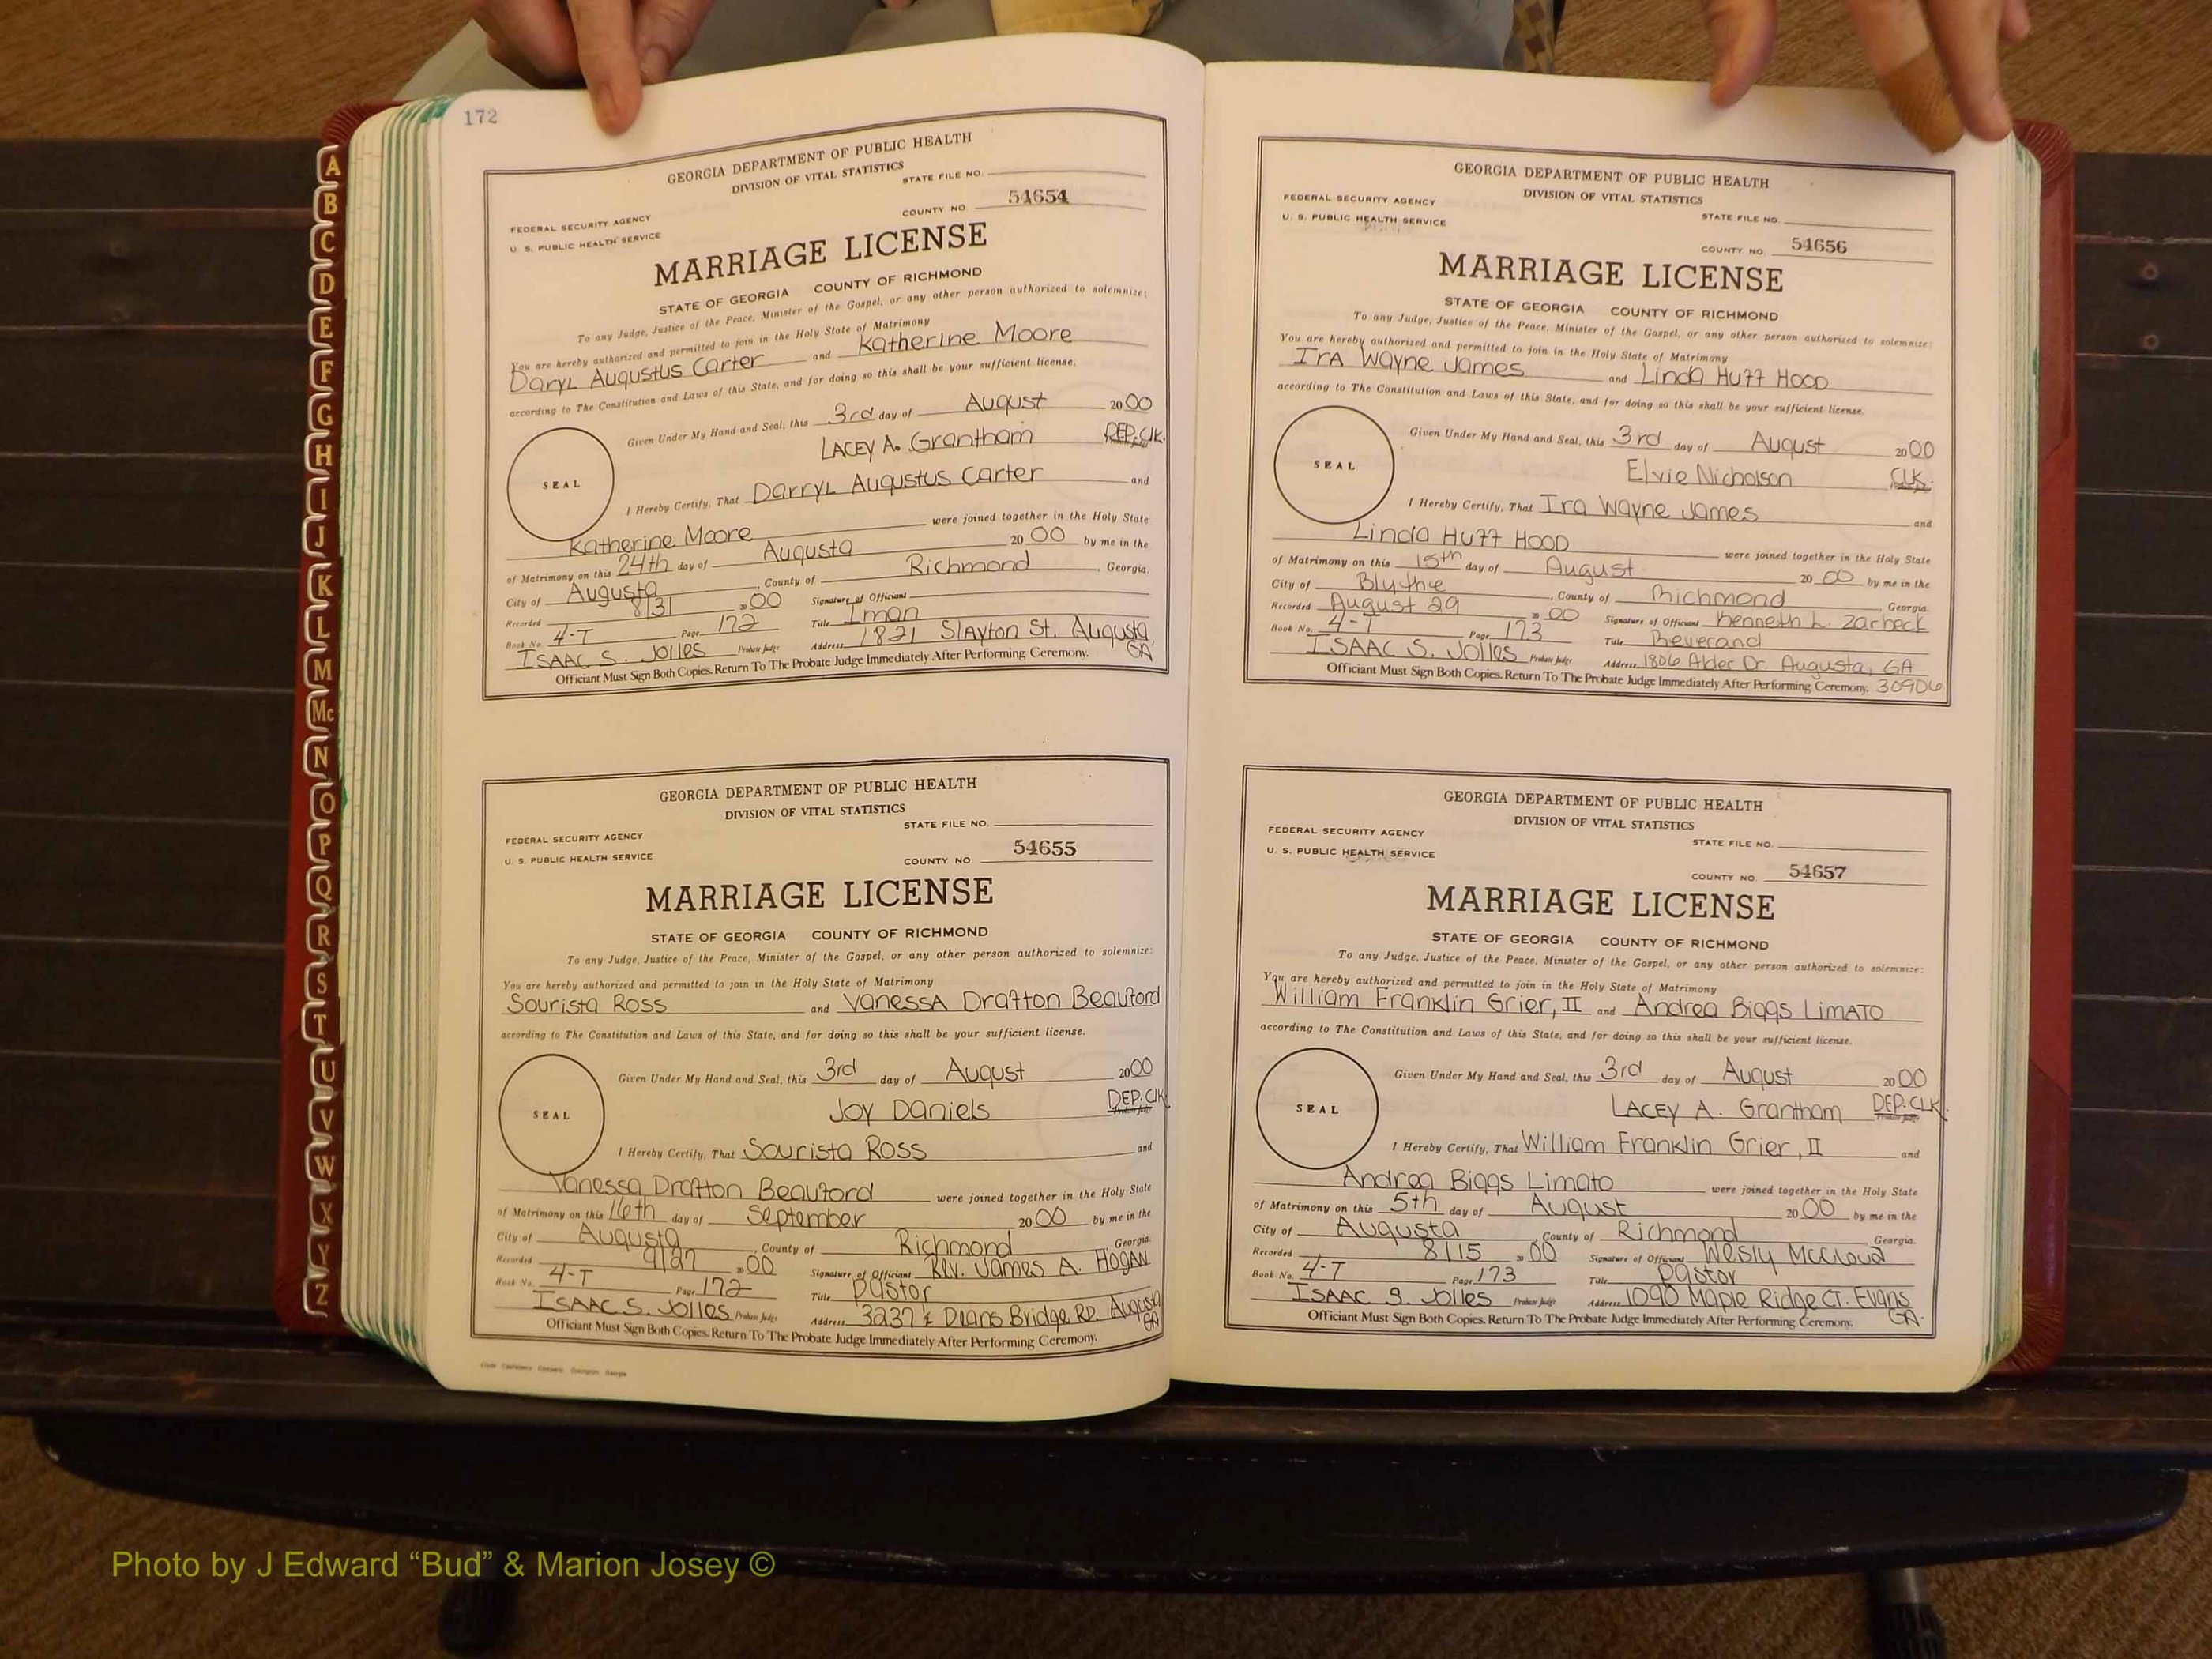 172
GEORGIA DEPARTMENT OF PUBLIC HEALTH
DIVISION OF VITAL STATISTICS
STATE FILE NO.
FEDERAL SECURITY AGENCY
COUNTY NO. 54654
U. S. PUBLIC HEALTH SERVICE
MARRIAGE LICENSE
STATE OF GEORGIA COUNTY OF RICHMOND
To any Judge, Justice of the Peace, Minister of the Gospel, or any other person authorized to solemnize:
You are hereby authorized and permitted to join in the Holy State of Matrimony
Daryl Augustus Carter and Katherine Moore
according to The Constitution and Laws of this State, and for doing so this shall be your sufficient license.
Given Under My Hand and Seal, this 3rd day of August 2000
LACEY A. Grantham DEP. Clk.
SEAL
I Hereby Certify, That Darryl Augustus Carter and
Katherine Moore were joined together in the Holy State
of Matrimony on this 24th day of Augusta 2000 by me in the
City of Augusta, County of Richmond, Georgia.
Recorded 8/31 2000 Signature of Officiant
Book No. 4-T Page 172 Title Iman
ISAAC S. Jolles Probate Judge Address 1821 Slayton St. Augusta, GA
Officiant Must Sign Both Copies. Return To The Probate Judge Immediately After Performing Ceremony.
GEORGIA DEPARTMENT OF PUBLIC HEALTH
DIVISION OF VITAL STATISTICS
STATE FILE NO.
FEDERAL SECURITY AGENCY
COUNTY NO. 54655
U. S. PUBLIC HEALTH SERVICE
MARRIAGE LICENSE
STATE OF GEORGIA COUNTY OF RICHMOND
To any Judge, Justice of the Peace, Minister of the Gospel, or any other person authorized to solemnize:
You are hereby authorized and permitted to join in the Holy State of Matrimony
Sourista Ross and Vanessa Drafton Beauford
according to The Constitution and Laws of this State, and for doing so this shall be your sufficient license.
Given Under My Hand and Seal, this 3rd day of August 2000
Joy Daniels DEP. Clk
SEAL
I Hereby Certify, That Sourista Ross and
Vanessa Drafton Beauford were joined together in the Holy State
of Matrimony on this 16th day of September 2000 by me in the
City of Augusta, County of Richmond, Georgia.
Recorded 9/27 2000 Signature of Officiant Rev. James A. Hogan
Book No. 4-T Page 172 Title Pastor
ISAAC S. Jolles Probate Judge Address 3237 Deans Bridge Rd. Augusta GA
Officiant Must Sign Both Copies. Return To The Probate Judge Immediately After Performing Ceremony.
GEORGIA DEPARTMENT OF PUBLIC HEALTH
DIVISION OF VITAL STATISTICS
FEDERAL SECURITY AGENCY
STATE FILE NO.
U. S. PUBLIC HEALTH SERVICE
COUNTY NO. 54656
MARRIAGE LICENSE
STATE OF GEORGIA COUNTY OF RICHMOND
To any Judge, Justice of the Peace, Minister of the Gospel, or any other person authorized to solemnize:
You are hereby authorized and permitted to join in the Holy State of Matrimony
Ira Wayne James and Linda Huff Hood
according to The Constitution and Laws of this State, and for doing so this shall be your sufficient license.
Given Under My Hand and Seal, this 3rd day of August 2000
Elvie Nicholson CLK.
SEAL
I Hereby Certify, That Ira Wayne James and
Linda Huff Hood were joined together in the Holy State
of Matrimony on this day of August 2000 by me in the
City of Blythe, County of Richmond, Georgia.
Recorded August 29 2000 Signature of Officiant Kenneth L. Zarbeck
Book No. 4-T Page 173 Title Reverand
ISAAC S. Jolles Probate Judge Address 1806 Alder Dr. Augusta, GA
Officiant Must Sign Both Copies. Return To The Probate Judge Immediately After Performing Ceremony. 30906
GEORGIA DEPARTMENT OF PUBLIC HEALTH
DIVISION OF VITAL STATISTICS
FEDERAL SECURITY AGENCY
STATE FILE NO.
U. S. PUBLIC HEALTH SERVICE
COUNTY NO. 54657
MARRIAGE LICENSE
STATE OF GEORGIA COUNTY OF RICHMOND
To any Judge, Justice of the Peace, Minister of the Gospel, or any other person authorized to solemnize:
You are hereby authorized and permitted to join in the Holy State of Matrimony
William Franklin Grier, II and Andrea Biggs Limato
according to The Constitution and Laws of this State, and for doing so this shall be your sufficient license.
Given Under My Hand and Seal, this 3rd day of August 2000
LACEY A. Grantham DEP. CLK.
SEAL
I Hereby Certify, That William Franklin Grier, II and
Andrea Biggs Limato were joined together in the Holy State
of Matrimony on this 5th day of August 2000 by me in the
City of Augusta, County of Richmond, Georgia.
Recorded 8/15 2000 Signature of Officiant Wesly McCloud
Book No. 4-T Page 173 Title Pastor
ISAAC S. Jolles Probate Judge Address 1090 Maple Ridge CT. Evans GA.
Officiant Must Sign Both Copies. Return To The Probate Judge Immediately After Performing Ceremony.
A
B
C
D
E
F
G
H
I
J
K
L
M
Mc
N
O
P
Q
R
S
T
U
V
W
X
Y
Z
Photo by J Edward “Bud” & Marion Josey ©